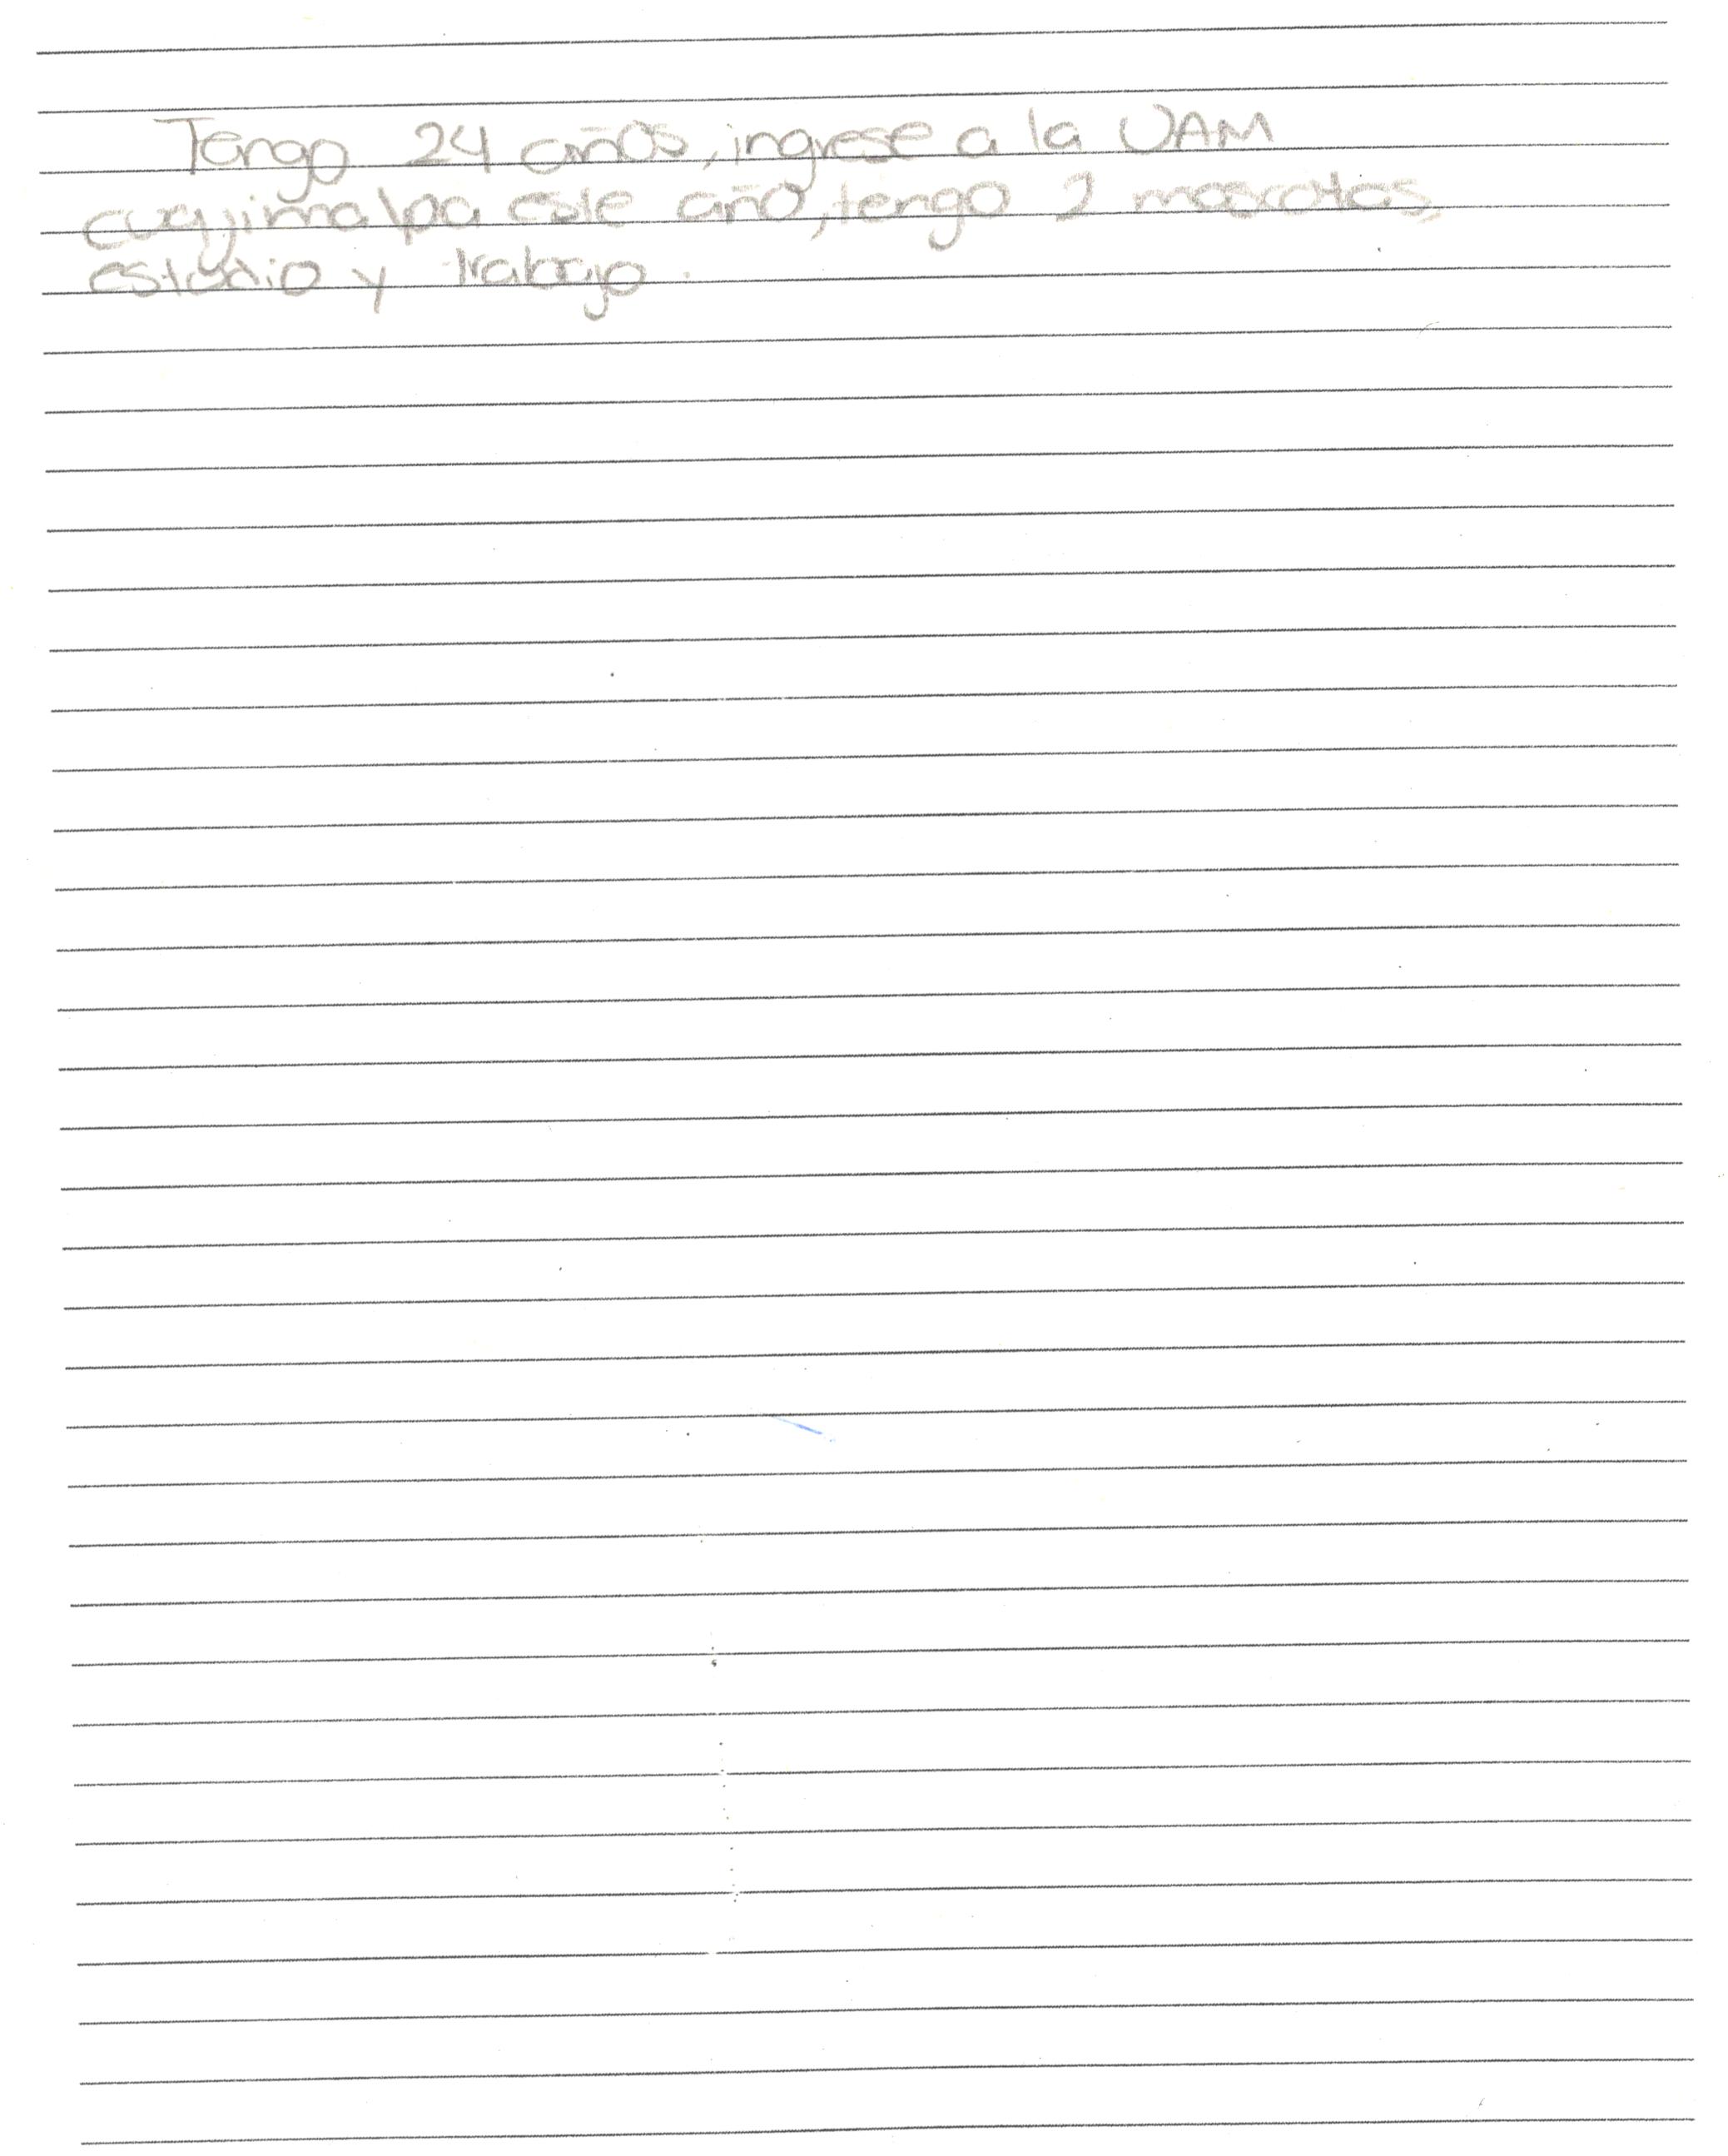 Tengo 24 años, ingrese a la UAM
cuajimalpa este año, tengo 2 mascotas,
estudio y trabajo.